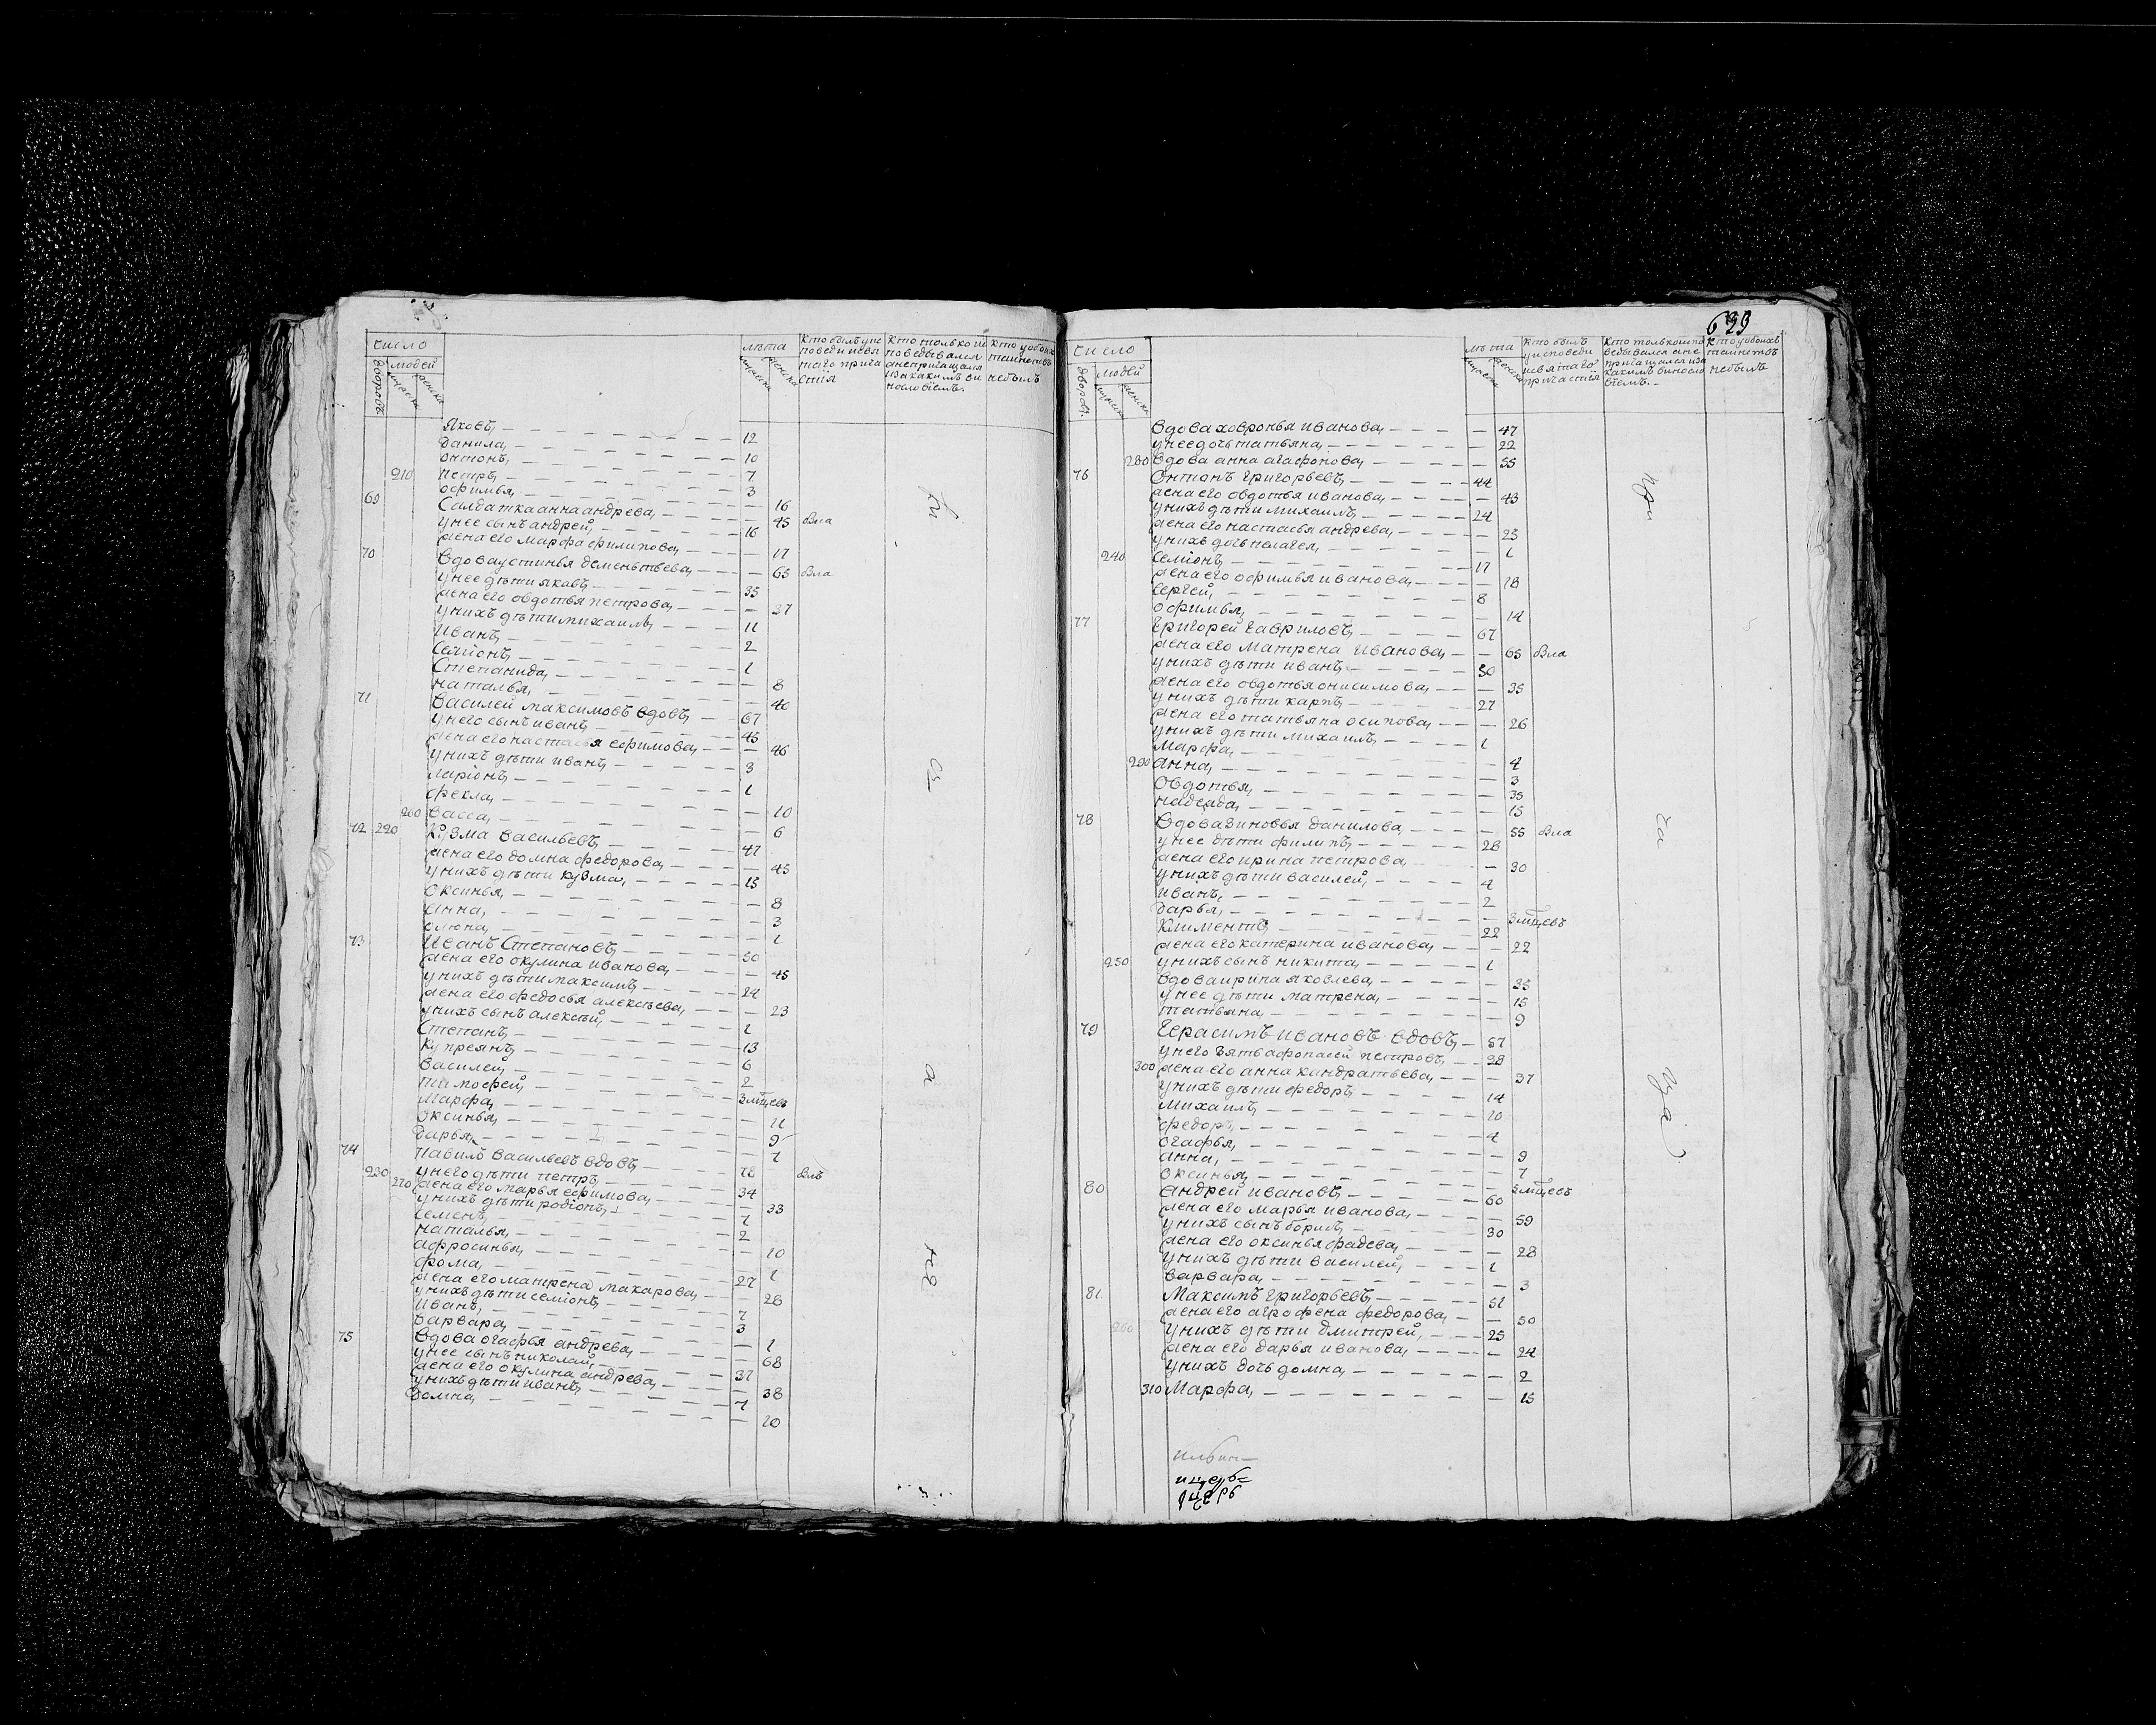 число
дворовъ
людей
мужеска
женска
лѣта
мужеска
женска
Кто былъ уис
поведи исвя
таго прича
стия
Кто только ис
поведывался
анепричащался
изакакимъ ви
нословіемъ.
Кто уобоихъ
таинствъ
небылъ
Яковъ 12
Данила 10
онтонъ 7
210 петръ 3
офимья 16
69 Салдатка анна андрева 45 Была
унее сынъ андрей 16
жена его марфа филипова 17
70 Вдова устинья дементьева 63 Была
унее дѣти яковъ 35
жена его овдотья петрова 37
унихъ дѣти михаилъ 11
Иванъ 2
Семионъ 1
Степанида 8
наталья 40
71 Василей максимовъ вдовъ 67
унего сынъ иванъ 45
жена его настасья ефимова 46
унихъ дѣти иванъ 3
ларіонъ 1
фекла 10
260 васса 6
72 220 Кузма Васильевъ 47
жена его домна федорова 45
унихъ дѣти кузма 15
оксинья 8
анна 3
1
73 Иванъ Степановъ 50
жена его окулина иванова 45
унихъ дѣти максимъ 24
жена его федосья алексѣева 23
унихъ сынъ алексѣй 1
Степанъ 13
Купреянъ 6
василей 2
тимофей 3 мцевъ
Марфа 11
оксинья 9
дарья 7
74 павилъ васильевъ вдовъ 78 Былъ
230 унего дѣти петръ 34
270 жена его марья ефимова 33
унихъ дѣти родіонъ 7
семенъ 2
наталья 10
афросинья 1
фома 27
жена его матрена макарова 28
унихъ дѣти семіонъ 7
Иванъ 3
варвара 1
75 Вдова огафья андрева 68
унее сынъ николай 37
жена его окулина андрева 38
унихъ дѣти иванъ 7
домна 10
629
число
дворовъ
людей
мужеска
женска
лѣта
мужеска
женска
Кто былъ
уисповеди
исвятаго
причастія
Кто только испо
ведывался ане
причащался иза
какимъ винносло
віемъ.
Кто уобоихъ
таинствъ
небылъ
Вдова ховронья иванова 47
унее дочь татьяна 22
280 Вдова анна агафонова 55
76 Онтонъ Григорьевъ 44
жена его овдотья иванова 43
унихъ дѣти михаилъ 24
жена его настасья андрева 23
унихъ дочь пелагея 1
240 Семіонъ 17
жена его офимья иванова 18
Сергей 8
офимья 14
77 Григорей Гавриловъ 67
жена его матрена иванова 65 Была
унихъ дѣти иванъ 50
жена его овдотья онисимова 35
унихъ дѣти карпъ 27
жена его татьяна осипова 26
унихъ дѣти михаилъ 1
Марфа 4
290 анна 3
Овдотья 35
надежда 15
78 Вдова зиновья данилова 55 Была
унее дѣти филипъ 28
жена его ирина петрова 30
унихъ дѣти василей 4
иванъ 2
дарья 3 мцевъ
Климентъ 22
жена его катерина иванова 22
250 унихъ сынъ никита 1
Вдова ирина яковлева 35
унее дѣти матрена 15
татьяна 9
79 Герасимъ ивановъ вдовъ 57
унего зять афонасей петровъ 28
300 жена его анна кандратьева 37
унихъ дѣти федоръ 14
Михаилъ 10
федоръ 4
огафья 9
анна 7
оксинья 3 мцевъ
80 Андрей ивановъ 60
жена его марья иванова 59
унихъ сынъ борисъ 30
жена его оксинья фадеева 28
унихъ дѣти василей 1
варвара 3
81 Максимъ григорьевъ 51
жена его агрофена федорова 50
260 унихъ дѣти дмитрей 25
жена его дарья иванова 24
унихъ дочь домна 2
310 Марфа 15